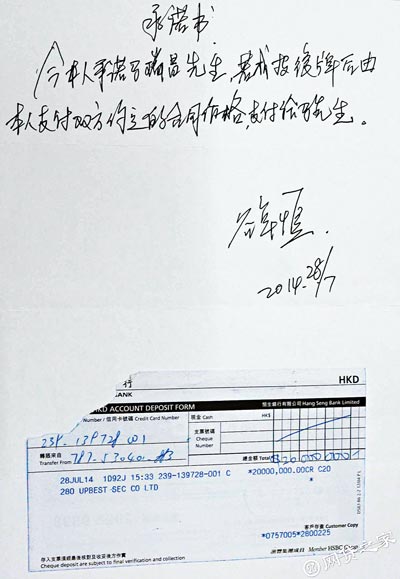 承诺书
今本人承诺马瑞昌先生,若
后由
本人支付双方约定的合同价格,支付给马先生。
2014.28/7
行
HKD
BANK
恒生銀行有限公司 Hang Seng Bank Limited
HKD ACCOUNT DEPOSIT FORM
Number / 信用卡號碼 Credit Card Number
現金 Cash
HK$
支票號碼
Cheque
Number
239-139728-001
轉賬來自
Transfer From 787-53040-
總金額 Total
28JUL14 1D92J 15:33 239-139728-001 C *20000,000.00CR C20
280 UPBEST SEC CO LTD *
客戶存查 Customer Copy
*0757005*2800225
存入支票須經最後核對及收妥後方作實
Cheque deposit are subject to final verification and collection
滙豐集團成員 Member HSBC Group
@网贷之家